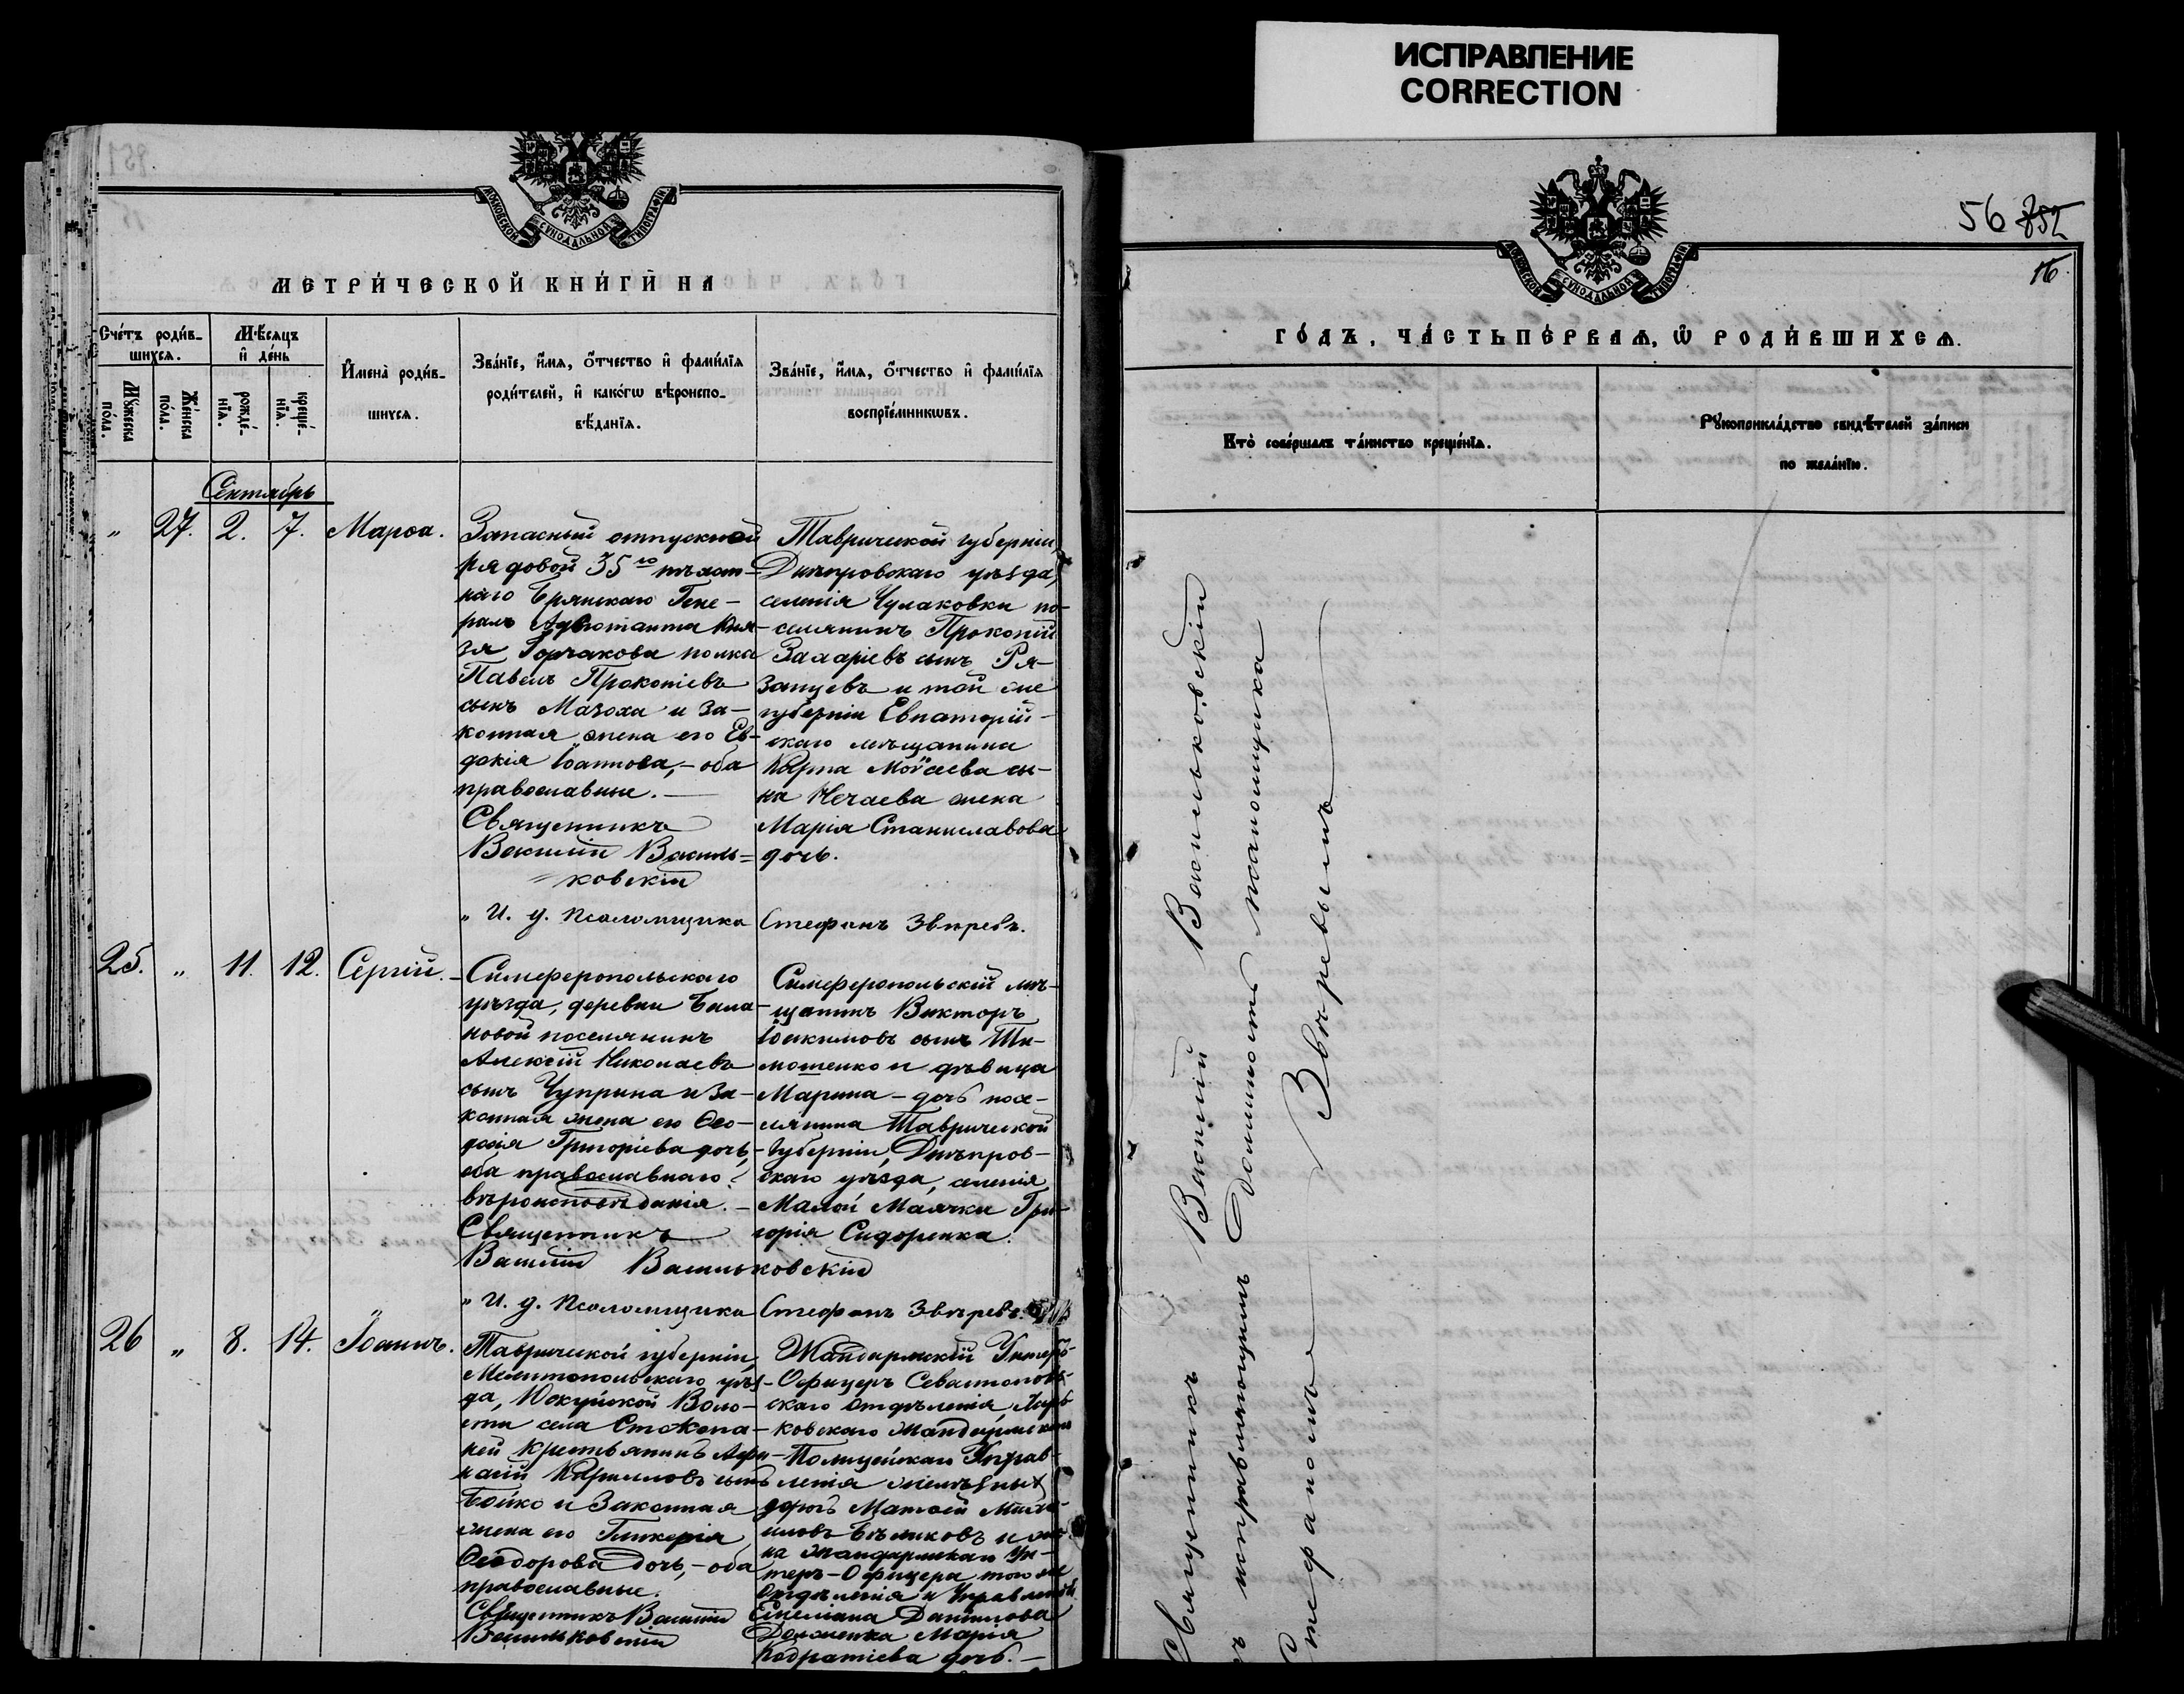 ИСПРАВЛЕНИЕ
CORRECTION
МОСКОВСКОЙ СѴНОДАЛЬНОЙ ТИПОГРАФІИ
МЕТРИ́ЧЕСКОЙ КНИ́ГИ НА
Сче́тъ роди́в-
шихся.
Мꙋ́жеска по́ла.
Же́нска по́ла.
Мѣ́сяцъ
и де́нь
рожде́-
нїя.
креще́-
нїя.
И҆мена̀ роди́в-
шихся.
Зва́нїе, и҆́мя, ѻ҆́тчество и҆ фами́лїя
роди́телей, и҆ како́гѡ вѣроиспо-
вѣ́данїя.
Зва́нїе, и҆́мя, ѻ҆́тчество и҆ фами́лїя
воспрїе́мникѡвъ.
Сентябрь
„ 27. 2. 7. Марѳа.
Запасный отпускной
рядовой 35го пѣхот-
наго Брянскаго Гене-
ралъ Адъютанта Кня-
зя Горчакова полка
Павелъ Прокопіевъ
сынъ Мазоха и за-
конная жена его Ев-
докія Іоаннова, – оба
православные. —
Священникъ
Василій Василь-
ковскій
Таврической губерніи,
Днѣпровскаго уѣзда,
селенія Чулаковки по-
селянинъ Прокопій
Захаріевъ сынъ Ря-
занцевъ и той же
губерніи Евпаторій-
скаго мѣщанина
Карпа Моѵсеева сы-
на Нечаева жена
Марія Станиславова
дочь.
„ И. д. псаломщика Стефанъ Звѣревъ.
25. „ 11. 12. Сергій.
Симферопольскаго
уѣзда, деревни Бала-
новой поселянинъ
Алексій Николаевъ
сынъ Чуприна и за-
конная жена его Ѳео-
досія Григоріева дочь,
оба православнаго
вѣроисповѣданія. –
Священникъ
Василій Васильковскій
Симферопольскій мѣ-
щанинъ Викторъ
Іоакимовъ сынъ Ти-
мошенко и дѣвица
Марина – дочь посе-
лянина Таврической
губерніи, Днѣпров-
скаго уѣзда, селенія
Малой Маячки Гри-
горія Сидоренка.
„ И. д. псаломщика Стефанъ Звѣревъ.
26 „ 8. 14. Іоаннъ.
Таврической губерніи,
Мелитопольскаго уѣз-
да, Юзкуйской Воло-
сти села
крестьянинъ Аѳа-
насій Кирилловъ сынъ
Бойко и законная
жена его Гликерія
Ѳеодорова дочь, – оба
православные.
Священникъ Василій
Васильковскій
Жандармскій Унтеръ-
Офицеръ Севастополь-
скаго отдѣленія, Харь-
ковскаго Жандармскаго
Полицейскаго Управ-
ленія желѣзныхъ
дорогъ Матѳей Миха-
иловъ Бѣликовъ и же-
на жандармскаго Ун-
теръ-Офицера того же
Отдѣленія и Управленія
Емеліана Данилова
Марія
Кодратіева дочь. —
56 852
16.
МОСКОВСКОЙ СѴНОДАЛЬНОЙ ТИПОГРАФІИ
ГО́ДЪ, ЧА́СТЬ ПЕ́РВАѦ, Ѽ РОДИ́ВШИХСѦ.
Кто̀ соверша́лъ та́инство креще́нїя.
Рꙋкоприкла́дство свидѣ́телей за́писи
по жела́нїю.
Священникъ Василій Васильковскій
съ исправляющимъ Должность псаломщика
Стефаномъ Звѣревымъ